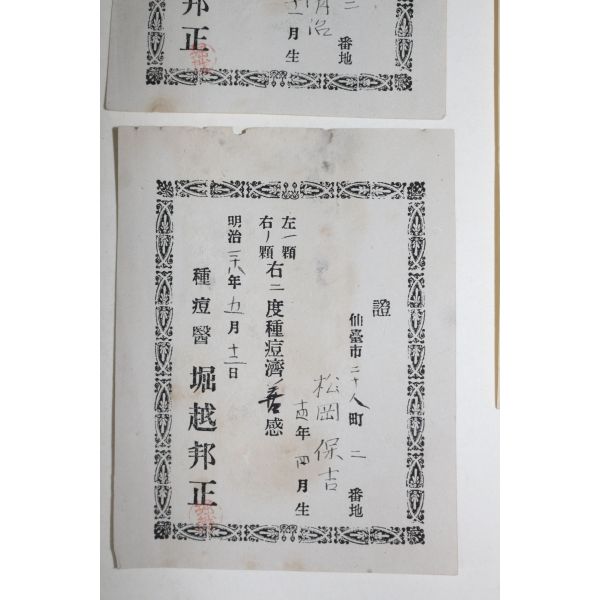 三番地
明治
十一月生
邦正
證
仙臺市二十人町二番地
松岡保吉
年四月生
左一顆
右一顆
右二度種痘濟善感
明治二十八年五月十二日
種痘醫 堀越邦正